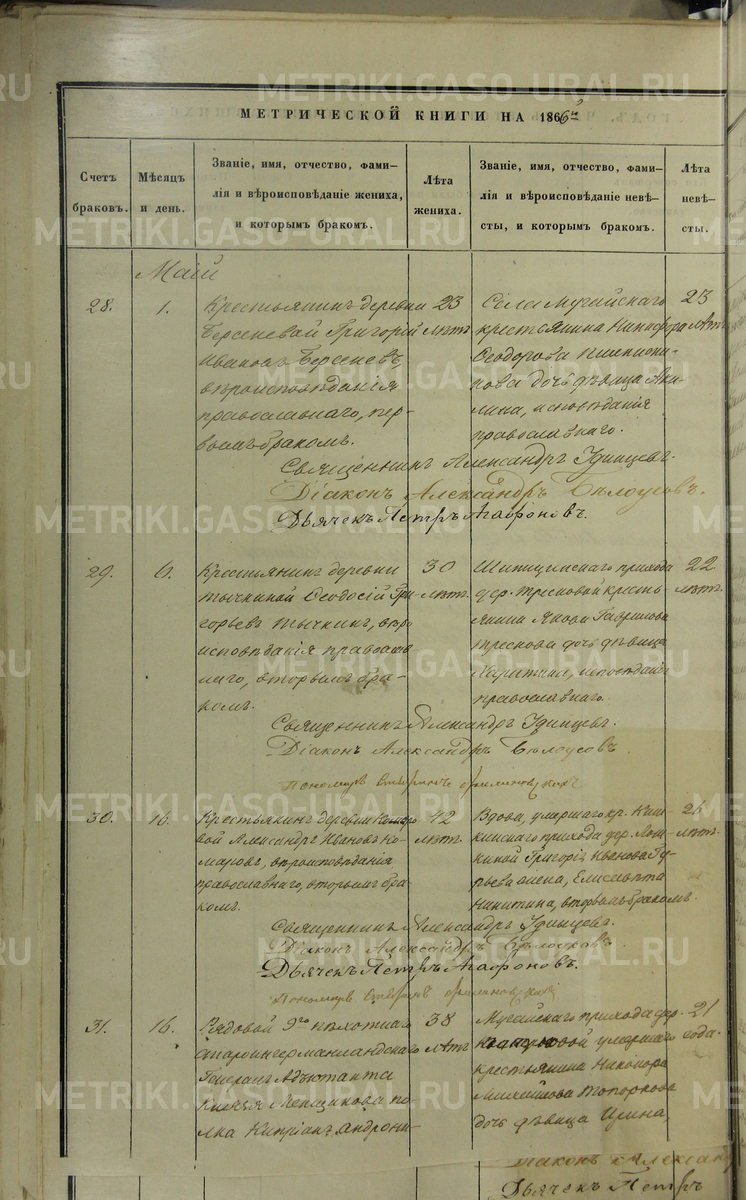 МЕТРИЧЕСКОЙ КНИГИ НА 1866
Счетъ браковъ.
Мѣсяцъ и день.
Званіе, имя, отчество, фами-
лія и вѣроисповѣданіе жениха,
и которымъ бракомъ.
Лѣта жениха.
Званіе, имя, отчество, фами-
лія и вѣроисповѣданіе невѣ-
сты, и которымъ бракомъ.
Лѣта невѣ-
сты.
Маій
28. 1.
Крестьянинъ деревни
Берсеневой Григорій
Ивановъ Берсеневъ,
вѣроисповѣданія
православнаго, пер-
вымъ бракомъ.
23
лѣтъ
Села Мугайскаго
крестьянина Никифора
Ѳеодорова
дочь дѣвица Аки-
лина, исповѣданія
православнаго.
23
лѣтъ
Священникъ Александръ Удинцевъ.
Діаконъ Александръ Бѣлоусовъ.
Дьячекъ Петръ Агафоновъ.
29. 6.
Крестьянинъ деревни
Тычкиной Ѳеодосій Гри-
горьевъ Тычкинъ, вѣро
исповѣданія православ
наго, вторымъ бра-
комъ.
30
лѣтъ.
прихода
дер. Тресковой кресть
янина Якова Гаврилова
Трескова дочь дѣвица
Харитина, исповѣданія
православнаго.
22
лѣтъ.
Священникъ Александръ Удинцевъ.
Діаконъ Александръ Бѣлоусовъ.
Пономарь
30. 16.
Крестьянинъ деревни Комаро
вой Александръ Ивановъ Ко-
маровъ, вѣроисповѣданія
православнаго, вторымъ бра-
комъ.
42
лѣтъ.
Вдова, умершаго кр.
прихода дер.
Григорія Иванова Гу-
рьева жена, Елисавета
Никитина, вторымъ бракомъ.
26
лѣтъ.
Священникъ Александръ Удинцевъ.
Діаконъ Александръ Бѣлоусовъ.
Дьячекъ Петръ Агафоновъ.
Пономарь
31. 16.
Рядовой 9го пѣхотнаго
Староингерманландскаго
Генералъ Адъютанта
Князя Меньшикова по-
лка Кипріанъ Андрони-
38
лѣтъ
Мугайскаго прихода дер.
умершаго
крестьянина Никонора
Михайлова Топоркова
дочь дѣвица Ирина,
21
года.
Діаконъ Александ
Дьячекъ Петръ
METRIKI.GASO-URAL.RU